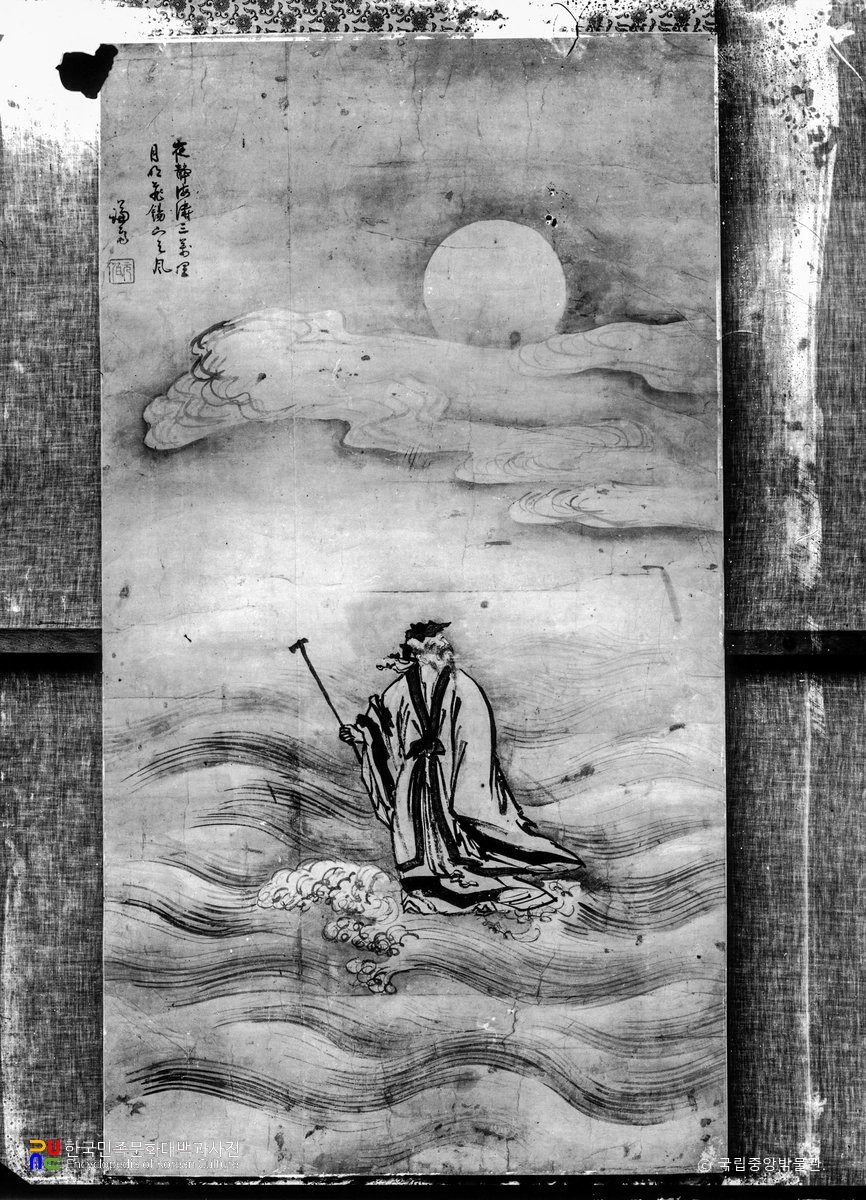 夜静海濤三萬里
月明飛錫下天風
謙齋
한국민족문화대백과사전
Encyclopedia of Korean Culture
© 국립중앙박물관